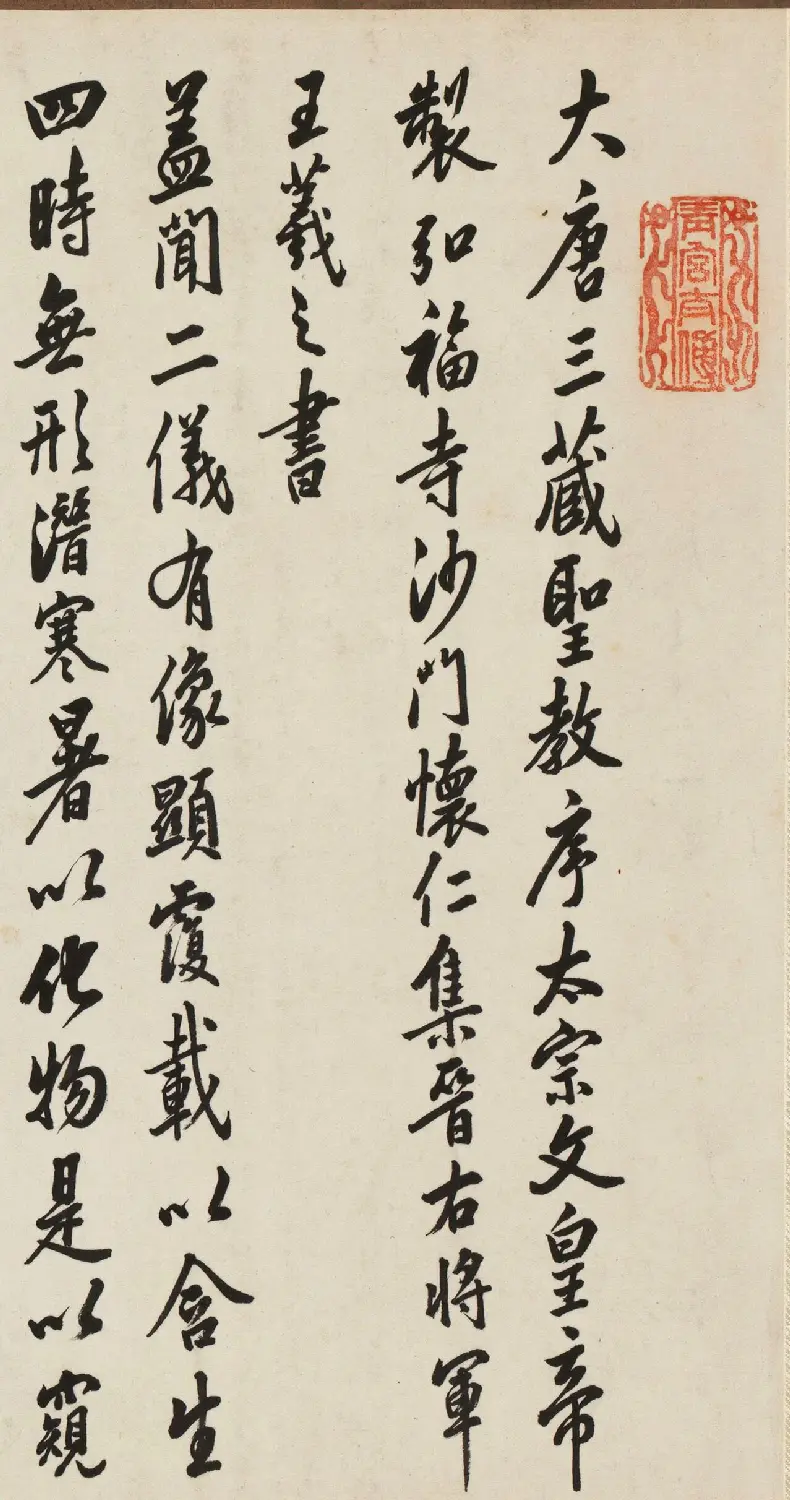 青宮太傅
大唐三藏聖教序太宗文皇帝
製弘福寺沙門懷仁集晉右將軍
王羲之書
蓋聞二儀有像顯覆載以含生
四時無形潛寒暑以化物是以窺